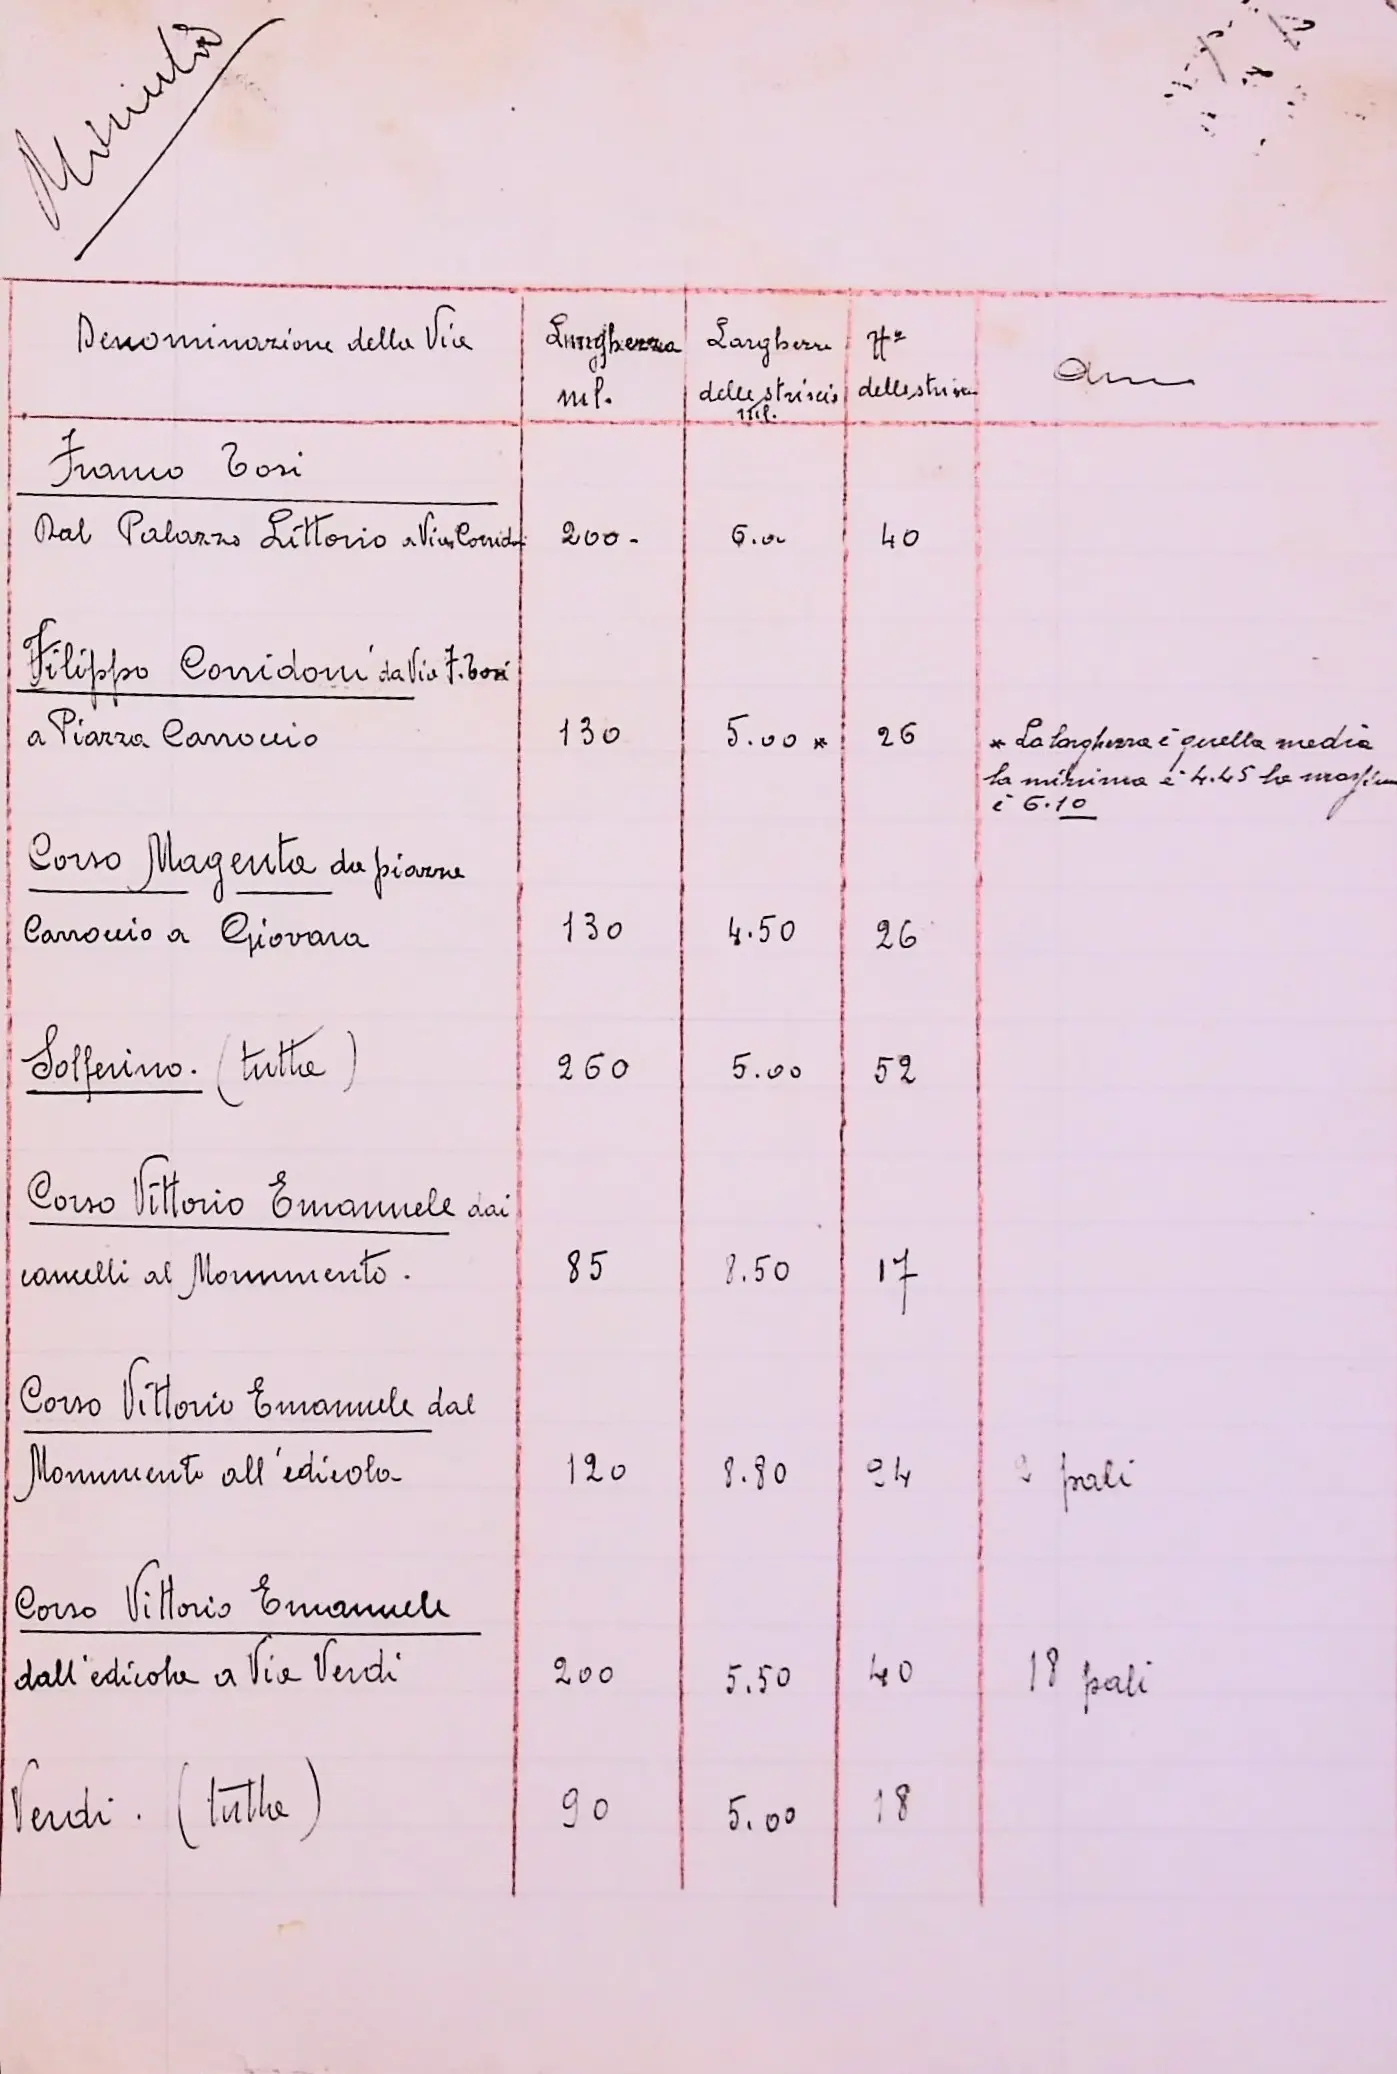 Minuta
Denominazione della Via Lunghezza ml. Larghezza delle striscie ml. N° delle striscie
Franco Tosi
Dal Palazzo Littorio a Via Corridoni 200 - 6.00 40
Filippo Corridoni da Via F. Tosi
a Piazza Carroccio 130 5.00 * 26 * La larghezza è quella media
la minima è 4.45 la massima
è 6.10
Corso Magenta da piazza
Carroccio a Giovara 130 4.50 26
Solferino. (tutta) 260 5.00 52
Corso Vittorio Emanuele dai
cancelli al Monumento. 85 8.50 17
Corso Vittorio Emanuele dal
Monumento all'edicola 120 8.80 24 2 pali
Corso Vittorio Emanuele
dall'edicola a Via Verdi 200 5.50 40 18 pali
Verdi. (tutta) 90 5.00 18